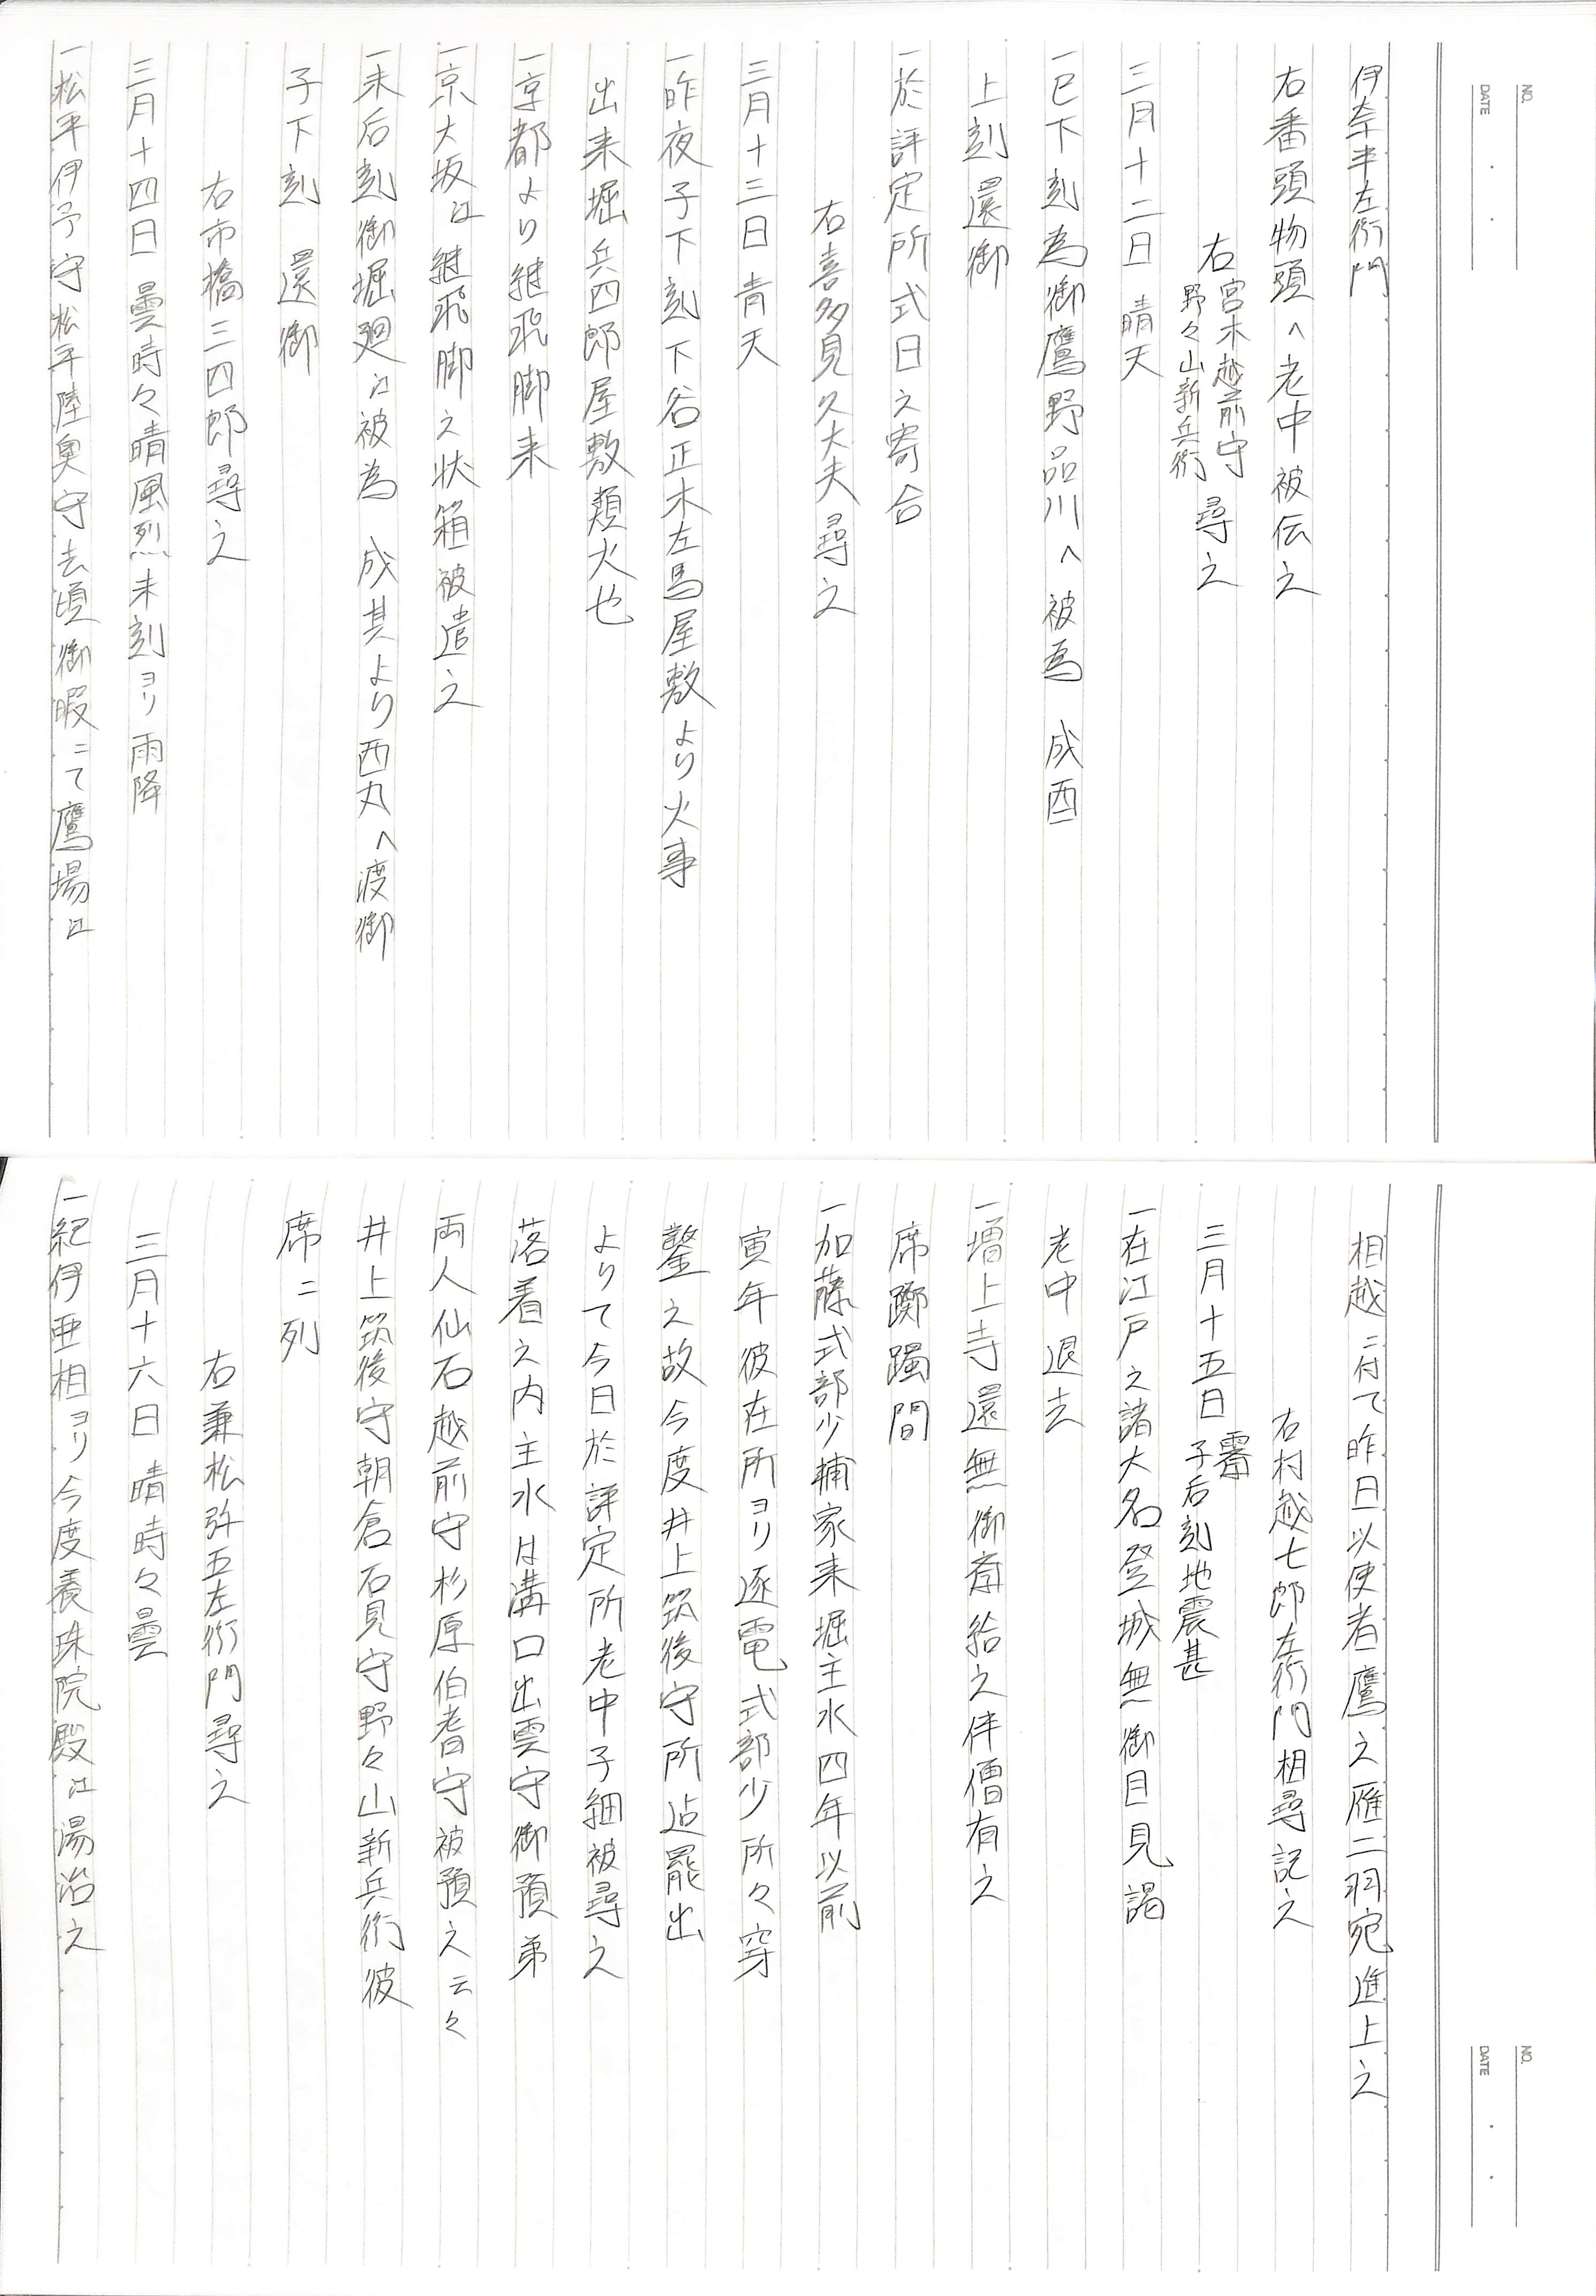 NO.
DATE
伊奈半左衛門
右番頭物頭へ老中被伝之
右宮木越前守野々山新兵衛尋之
三月十二日 晴天
一巳下刻為御鷹野品川へ被為 成酉
上刻還御
一於評定所式日之寄合
右喜多見久大夫尋之
三月十三日 青天
一昨夜子下刻下谷正木左馬屋敷より火事
出来堀兵四郎屋敷類火也
一京都より継飛脚来
一京大坂江継飛脚之状箱被遣之
一未后刻御堀廻江被為 成其より西丸へ渡御
子下刻 還御
右市橋三四郎尋之
三月十四日 曇時々晴風烈未刻ヨリ雨降
一松平伊予守松平陸奥守去頃御暇ニて鷹場江
NO.
DATE
相越ニ付て昨日以使者鷹之雁二羽宛進上之
右村越七郎左衛門相尋記之
三月十五日 霽 子后刻地震甚
一在江戸之諸大名登城無御目見謁
老中退去
一増上寺還無御斎給之伴僧有之
席躑躅間
一加藤式部少輔家来堀主水四年以前
寅年彼在所ヨリ逐電式部少所々穿
鑿之故今度井上筑後守所迠罷出
よりて今日於評定所老中子細被尋之
落着之内主水は溝口出雲守御預弟
両人仙石越前守杉原伯耆守被預之云々
井上筑後守朝倉石見守野々山新兵衛彼
席ニ列
右兼松弥五左衛門尋之
三月十六日 晴時々曇
一紀伊亜相ヨリ今度養珠院殿江湯治之